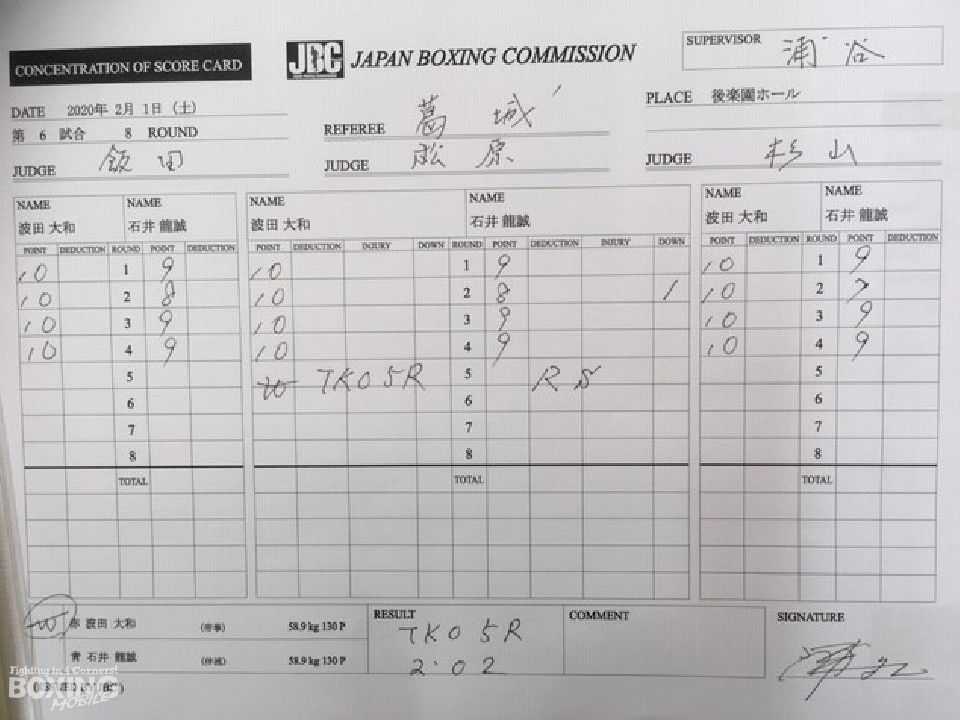 CONCENTRATION OF SCORE CARD
JBC JAPAN BOXING COMMISSION
SUPERVISOR 浦谷
DATE 2020年 2月 1日 (土)
PLACE 後楽園ホール
第 6 試合 8 ROUND
REFEREE 葛城
JUDGE 飯田
JUDGE 松原
JUDGE 杉山
NAME NAME NAME NAME NAME NAME
波田 大和 石井 龍誠 波田 大和 石井 龍誠 波田 大和 石井 龍誠
POINT DEDUCTION ROUND POINT DEDUCTION POINT DEDUCTION INJURY DOWN ROUND POINT DEDUCTION INJURY DOWN POINT DEDUCTION ROUND POINT DEDUCTION
10 1 9 10 1 9 10 1 9
10 2 8 10 2 8 1 10 2 7
10 3 9 10 3 9 10 3 9
10 4 9 10 4 9 10 4 9
5 W TKO 5R 5 R S 5
6 6 6
7 7 7
8 8 8
TOTAL TOTAL TOTAL
W 赤 波田 大和 (帝拳) 58.9 kg 130 P
青 石井 龍誠 58.9 kg 130 P
RESULT
TKO 5R
2:02
COMMENT
SIGNATURE
Fighting in 4 Corners!
BOXING
MOBILE